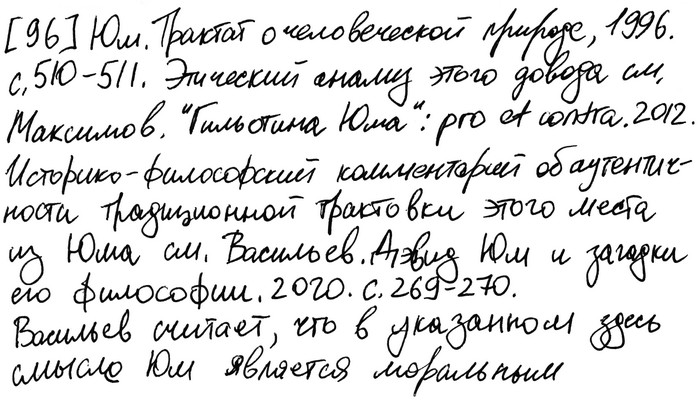 [96] Юм. Трактат о человеческой природе, 1996.
с. 510-511. Этический анализ этого довода см.
Максимов. "Гильотина Юма": pro et contra. 2012.
Историко-философский комментарий об аутентич-
ности традиционной трактовки этого места
из Юма см. Васильев. Дэвид Юм и загадки
его философии. 2020. с. 269-270.
Васильев считает, что в указанном здесь
смысле Юм является моральным